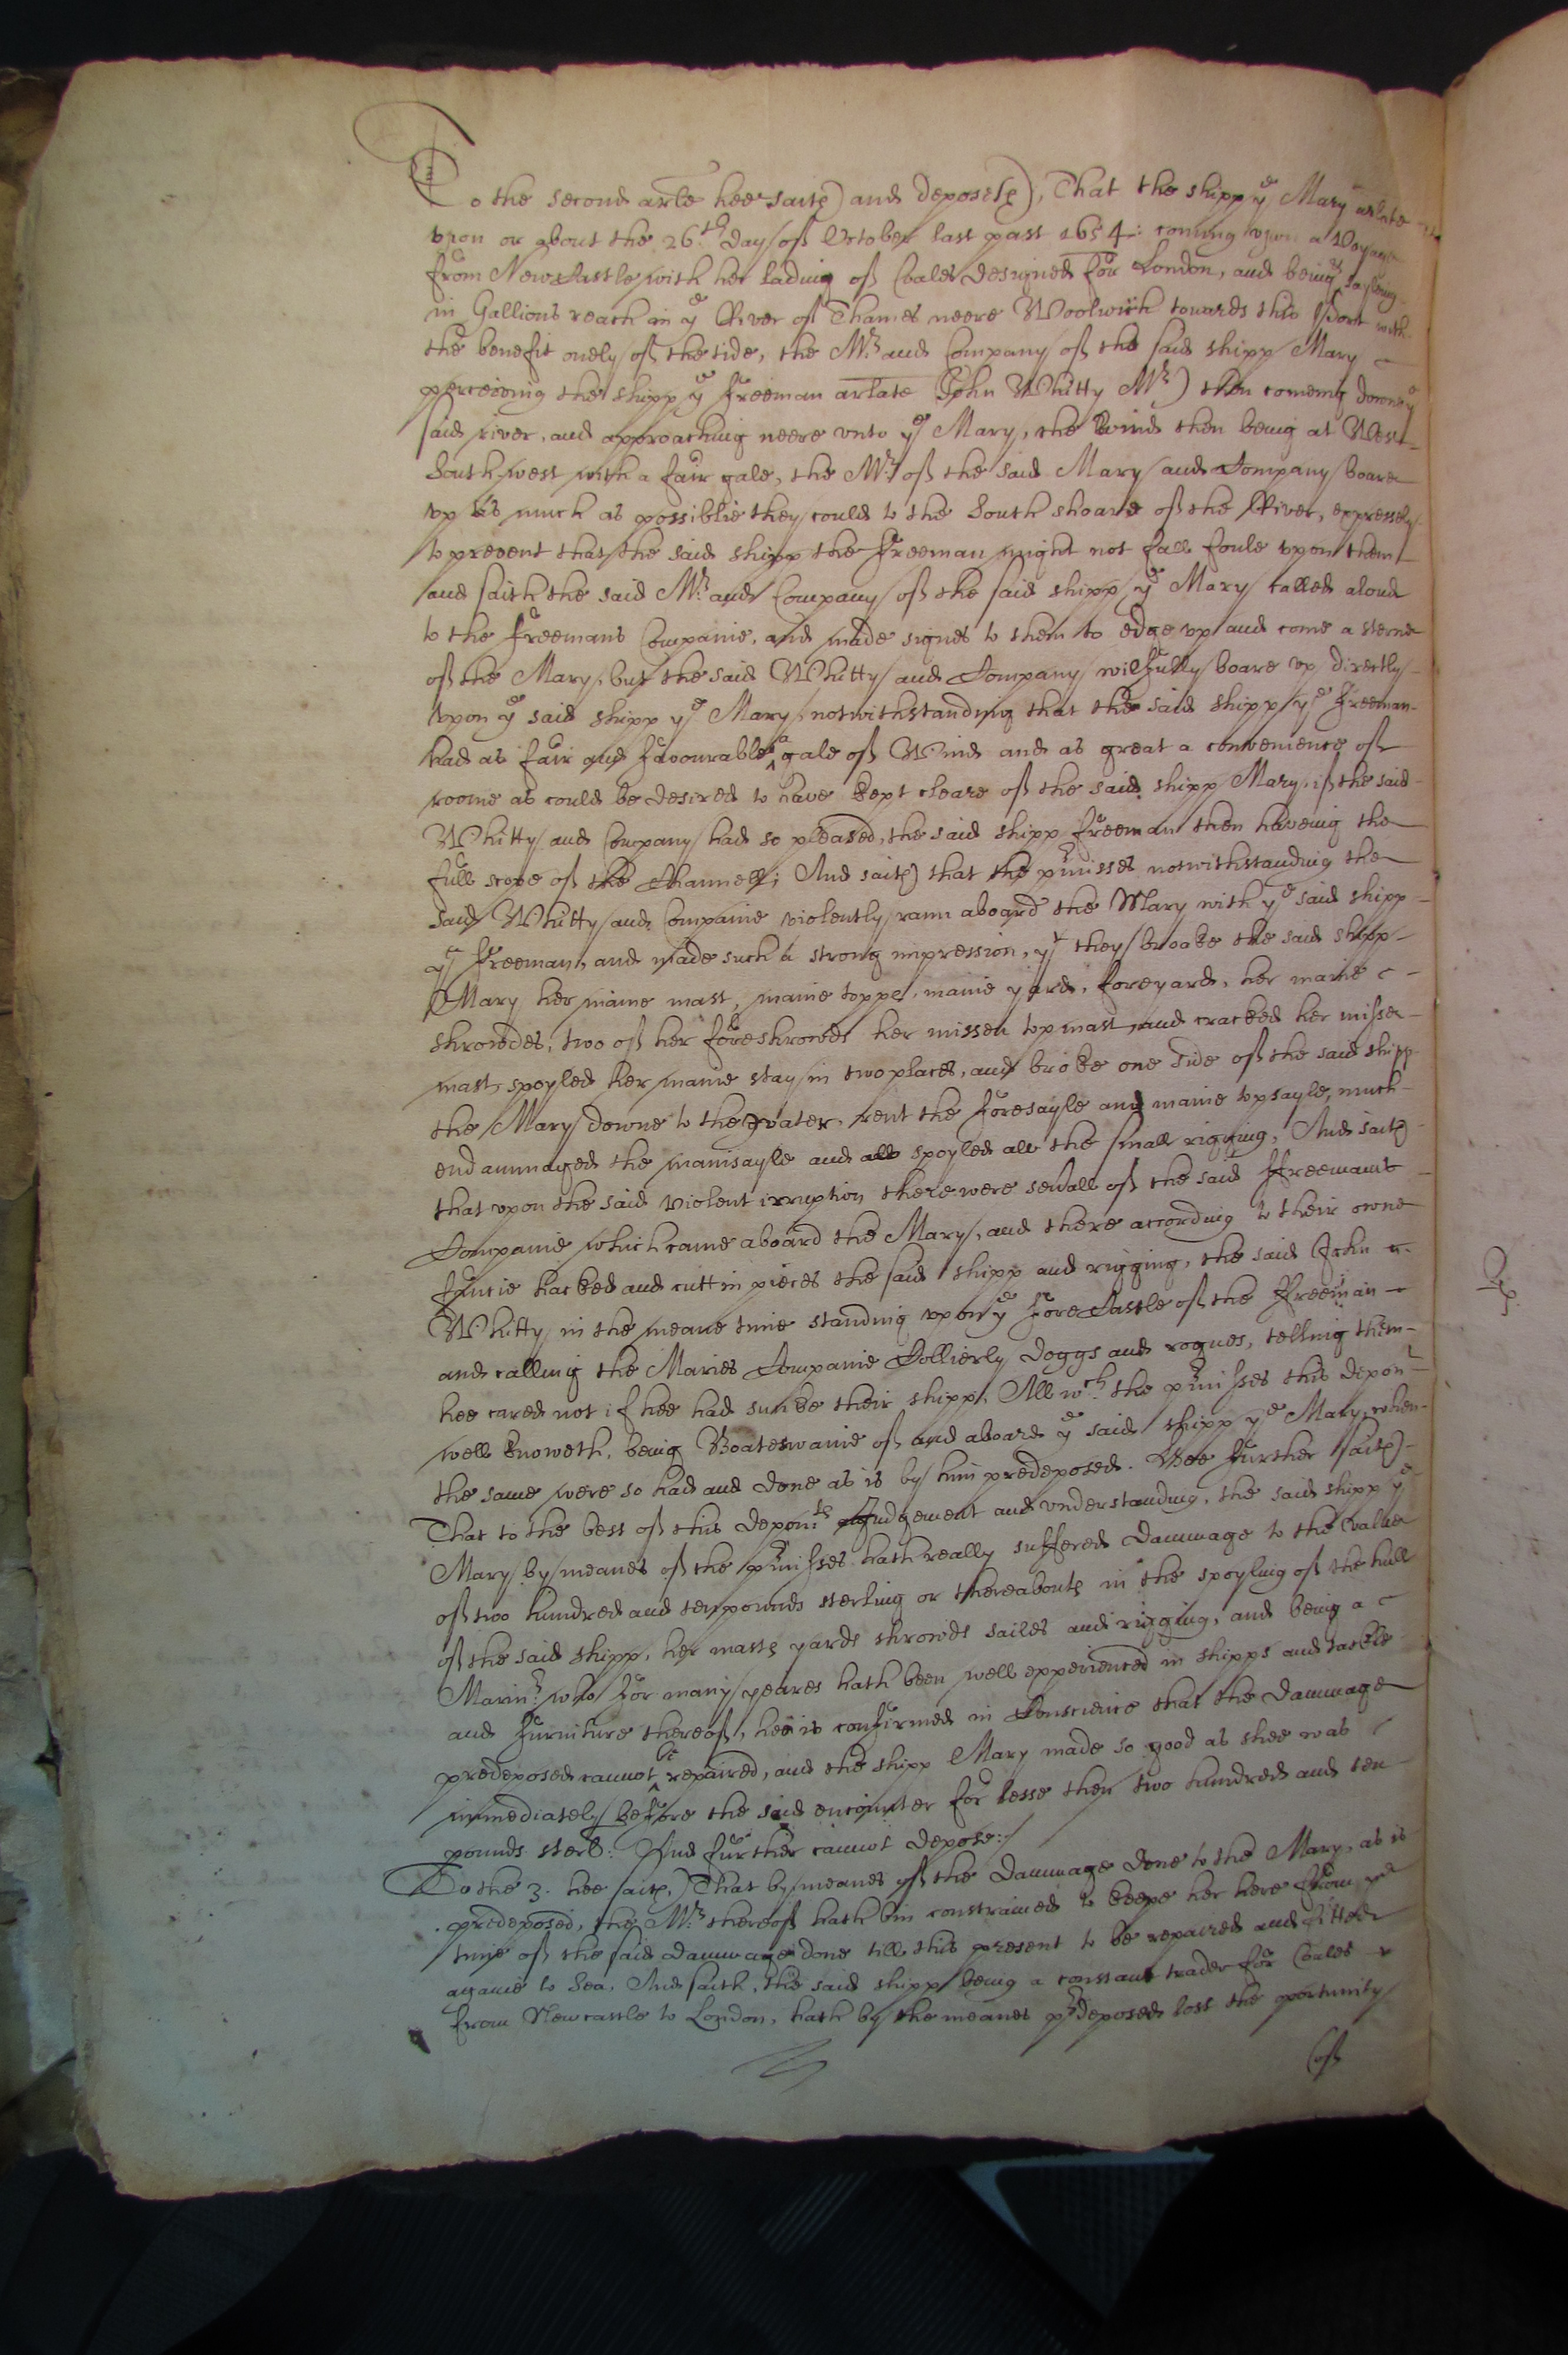 To the second arle hee saith and deposeth, That the shipp ye Mary arlate
vpon or about the 26.th day of October last past 1654: coming vpon a Voyage
from NewCastle with her lading of Coales designed for London, and being sayleing
in Gallions reach in ye River of Thames neere Woolwich towards this Port with
the benefit onely of the tide, the Mr. and Company of the said shipp Mary
perceiving the shipp ye Freeman arlate John Whitty Mr) then comeing downe ye
said river, and approaching neere vnto ye Mary, the Wind then being at West
South west with a fair gale, the Mr. of the said Mary and Company boare
vp as much as possiblie they could to the South shoare of the River, expressely
to prevent that the said shipp the Freeman might not fall foule vpon them
and saith the said Mr. and Company of the said shipp ye Mary called aloud
to the Freemans Companie, and made signes to them to edge vp and come a sterne
of the Mary, but the said Whitty and Company wilfully boare vp directly
vpon ye said shipp ye Mary, notwithstanding that the said shipp ye Freeman
had as fair and favourable a gale of Wind and as great a convenience of
roome as could be desired to have kept cleare of the said shipp Mary, if the said
Whitty and Company had so pleased, the said shipp Freeman then haveing the
full scope of the Channell; And saith that the pmisses notwithstanding the
said Whitty and Companie violently rann aboard the Mary with ye said shipp
ye Freeman, and made such a strong impression, yt they broake the said shipp
Mary her maine mast, maine toppe, maine yard, foreyard, her maine
shrowdes, two of her foreshrowds her missen topmast, and cracked her missen
mast, spoyled her maine stay in two places, and broke one side of the said shipp
the Mary downe to the water, rent the foresayle and maine topsayle, much
endammaged the mainsayle and all spoyled all the small rigging, And saith
that vpon the said violent irruption there were severall of the said Freemans
Companie which came aboard the Mary, and there according to their owne
furie hacked and cutt in pieces the said shipp and rigging, the said John
Whitty in the meane time standing vpon ye foreCastle of the Freeman
and calling the Maries Companie Collierly doggs and rogues, telling them
hee cared not if hee had sunke their shipp, All wch. the pmisses this depont
well knoweth, being Boateswaine of and aboard ye said shipp ye Mary, when
the same were so had and done as is by him predeposed. Hee further saith
That to the best of this deponts Judgement and vnderstanding, the said shipp ye
Mary by meanes of the pmisses hath really suffered dammage to the value
of two hundred and ten pounds sterling or thereabouts in the spoyling of the hull
of the said shipp, her masts yards shrowds sailes and rigging, and being a
Marinr. who for many yeares hath been well experienced in shipps and tackle
and furniture thereof, hee is confirmed in Conscience that the dammage
predeposed cannot be repaired, and the shipp Mary made so good as shee was
immediately before the said encounter for lesse then two hundred and ten
pounds sterl: And further cannot depose:/
To the 3. hee saith, That by meanes of the dammage done to the Mary, as is
predeposed, the Mr. thereof hath bin constrained to keepe her here from ye
time of the said dammage done till this present to be repaired and fitted
againe to Sea, And saith, the said shipp being a constant trader for Coales
from Newcastle to London, hath by the meanes pdeposed lost the oportunity
of